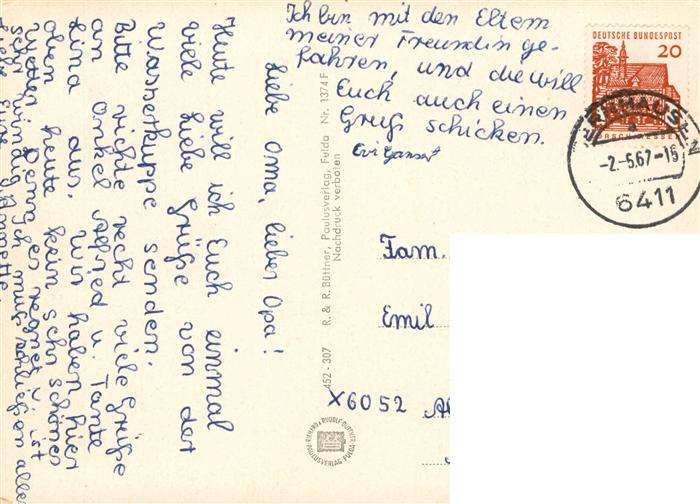 Liebe Oma, lieber Opa!
Heute will ich Euch einmal
viele liebe Grüße von der
Wasserkuppe senden.
Bitte richte recht viele Grüße
an Onkel Alfried u. Tante
Lina aus. Wir haben hier
oben heute kein sehr schönes
Wetter, denn es regnet u. ist
sehr windig. Ich muß schließen
Ich bin mit den Eltern
meiner Freundin ge-
fahren, und die will
Euch auch einen
Gruß schicken.
Evi
DEUTSCHE BUNDESPOST
20
-2.-5.67-15
6411
Fam.
Emil
X6052
452 - 307 R. & R. Büttner, Paulusverlag, Fulda Nr. 1374 F
Nachdruck verboten
RICHARD u. RUDOLF BÜTTNER
PAULUSVERLAG - FULDA